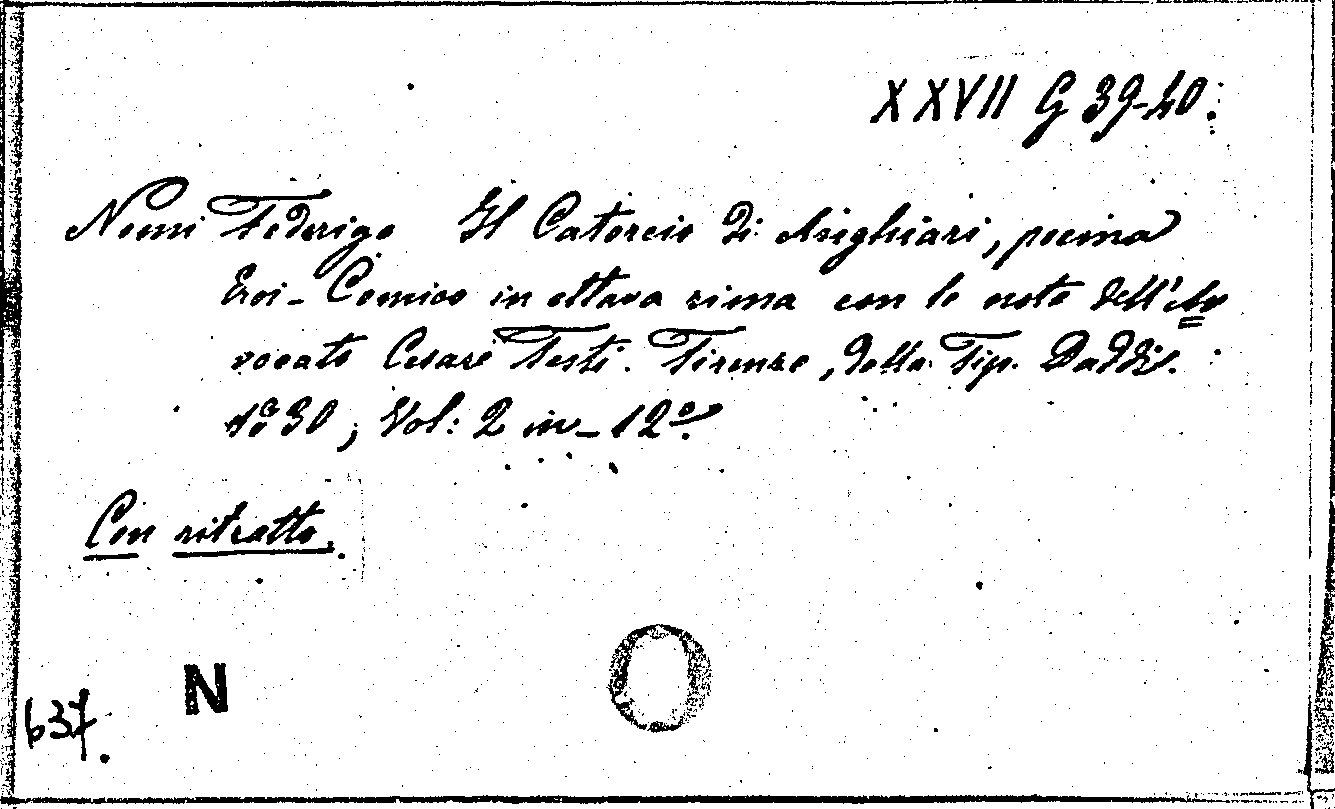 XXVII G 39-40.
Nomi Federigo Il Catorcio di Anghiari, poema
Eroi-Comico in ottava rima con le note dell'Av
vocato Cesare Testi. Firenze, dalla Tip. Daddi.
1830, Vol: 2 in-12º.
Con ritratto.
N
637.